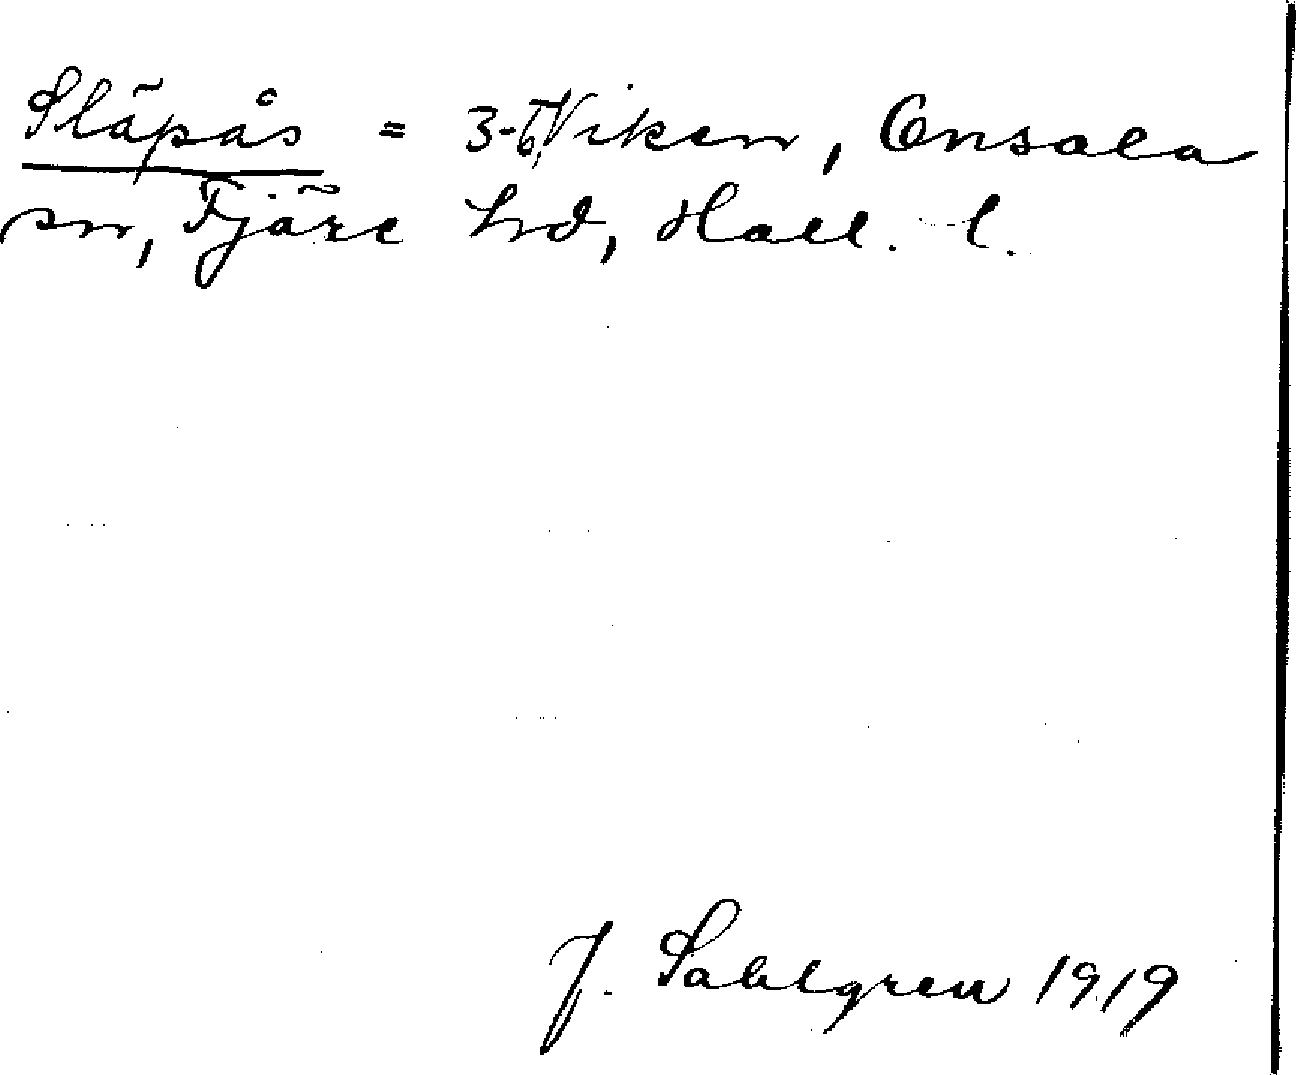 Släpås = 3-6, Viken, Onsala
sn, Fjäre hd, Hall. l.
J. Sahlgren 1919